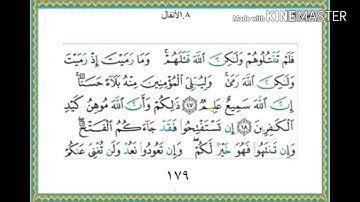 ٨.الأنفال
Made with KINEMASTER
فَلَمْ تَقْتُلُوهُمْ وَلَٰكِنَّ ٱللَّهَ قَتَلَهُمْ ۚ وَمَا رَمَيْتَ إِذْ رَمَيْتَ
وَلَٰكِنَّ ٱللَّهَ رَمَىٰ ۚ وَلِيُبْلِىَ ٱلْمُؤْمِنِينَ مِنْهُ بَلَآءً حَسَنًا ۚ
إِنَّ ٱللَّهَ سَمِيعٌ عَلِيمٌ ١٧ ذَٰلِكُمْ وَأَنَّ ٱللَّهَ مُوهِنُ كَيْدِ
ٱلْكَٰفِرِينَ ١٨ إِن تَسْتَفْتِحُوا۟ فَقَدْ جَآءَكُمُ ٱلْفَتْحُ ۖ
وَإِن تَنتَهُوا۟ فَهُوَ خَيْرٌ لَّكُمْ ۖ وَإِن تَعُودُوا۟ نَعُدْ وَلَن تُغْنِىَ عَنكُمْ
١٧٩